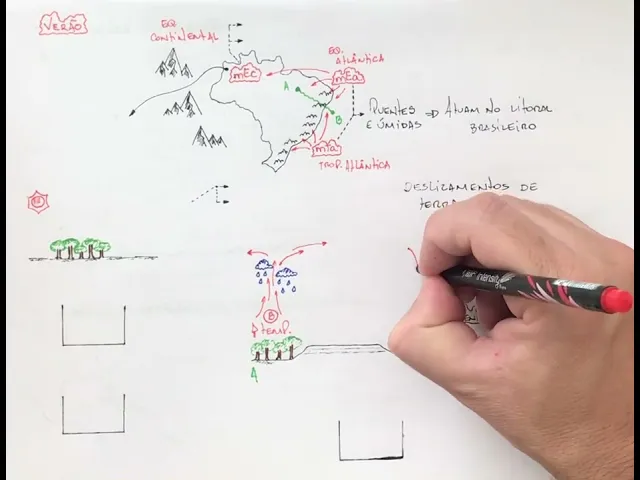 VERÃO
EQ.
CONTINENTAL
EQ.
ATLÂNTICA
mEc
mEa
A
B
QUENTES ⇒ ATUAM NO LITORAL
E ÚMIDAS BRASILEIRO
mTa
TROP. ATLÂNTICA
DESLIZAMENTOS DE
TERRA
B
TEMP.
A